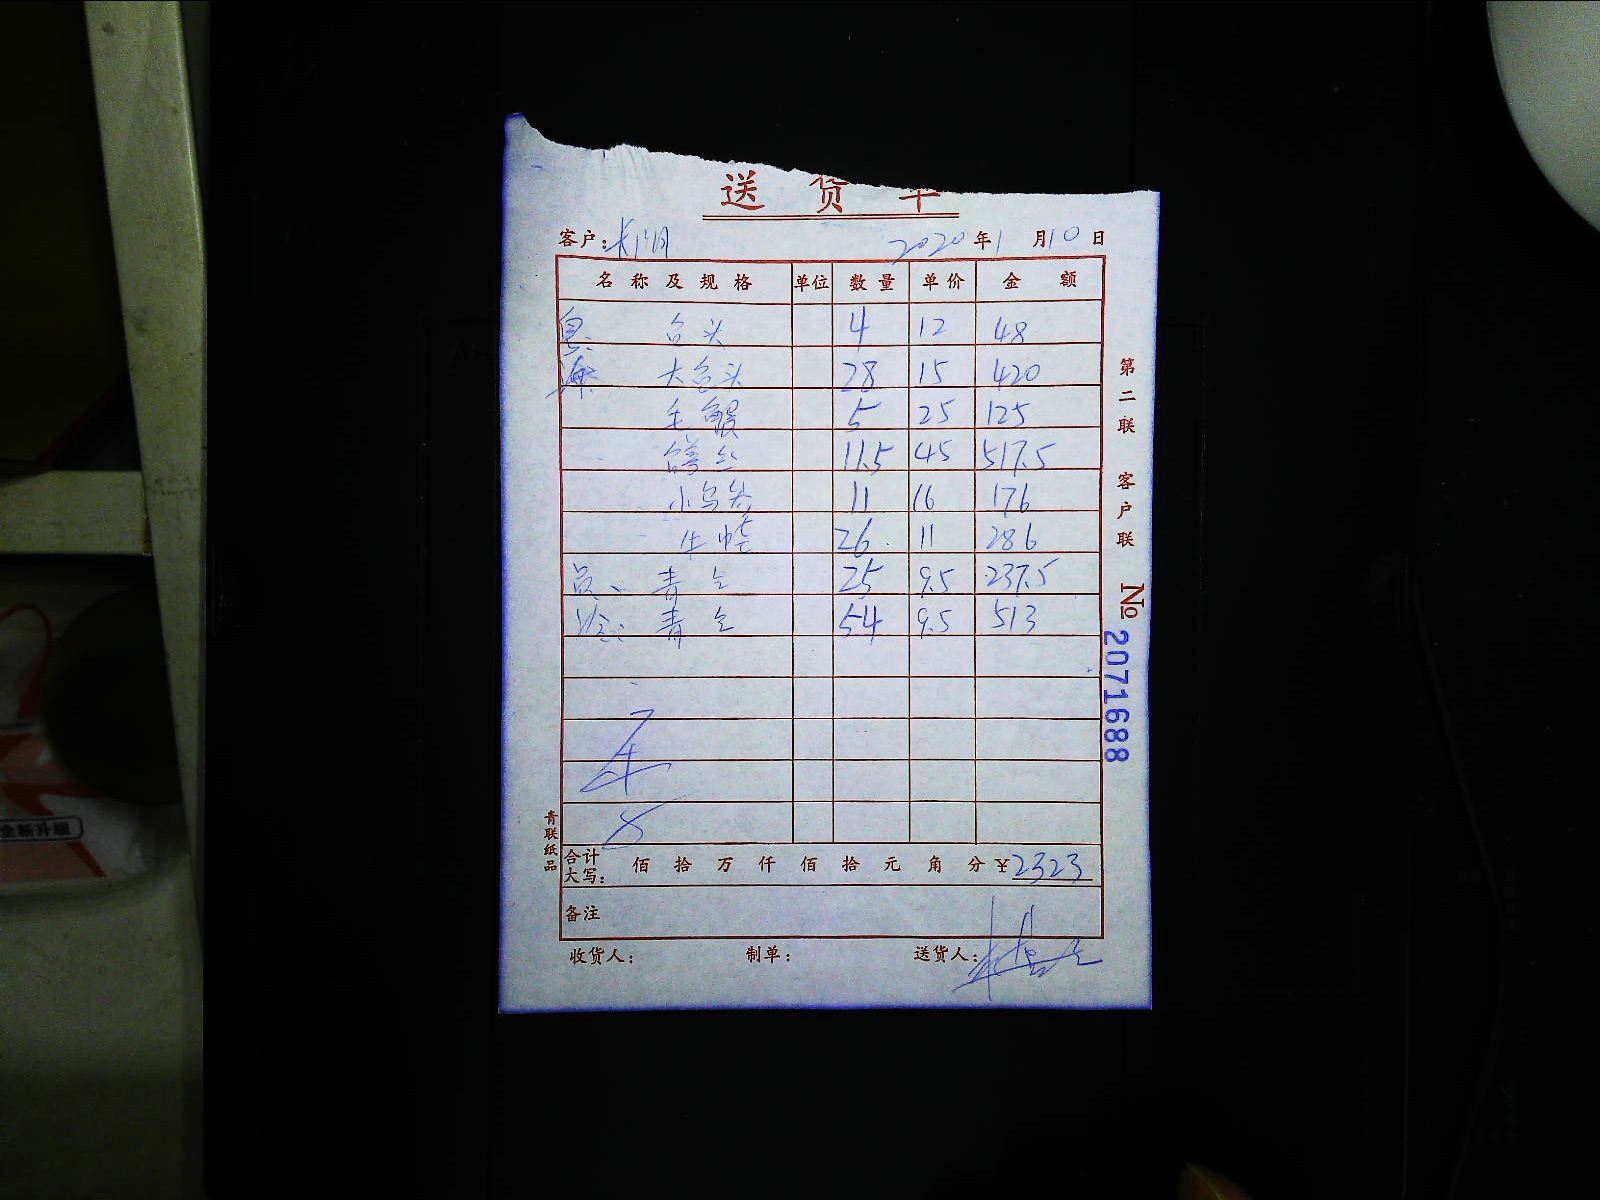 送 货 单
客户: 2020年1月10日
名称及规格 单位 数量 单价 金额
台头 4 12 48
大台头 28 15 420
毛 5 25 125
11.5 45 517.5
小乌 11 16 176
牛 26 11 286
青 25 9.5 237.5
冷: 青 54 9.5 513
合计大写: 佰 拾 万 仟 佰 拾 元 角 分 ¥2323
备注
收货人: 制单: 送货人:
第二联 客户联
№ 2071688
青联纸品
全新升级